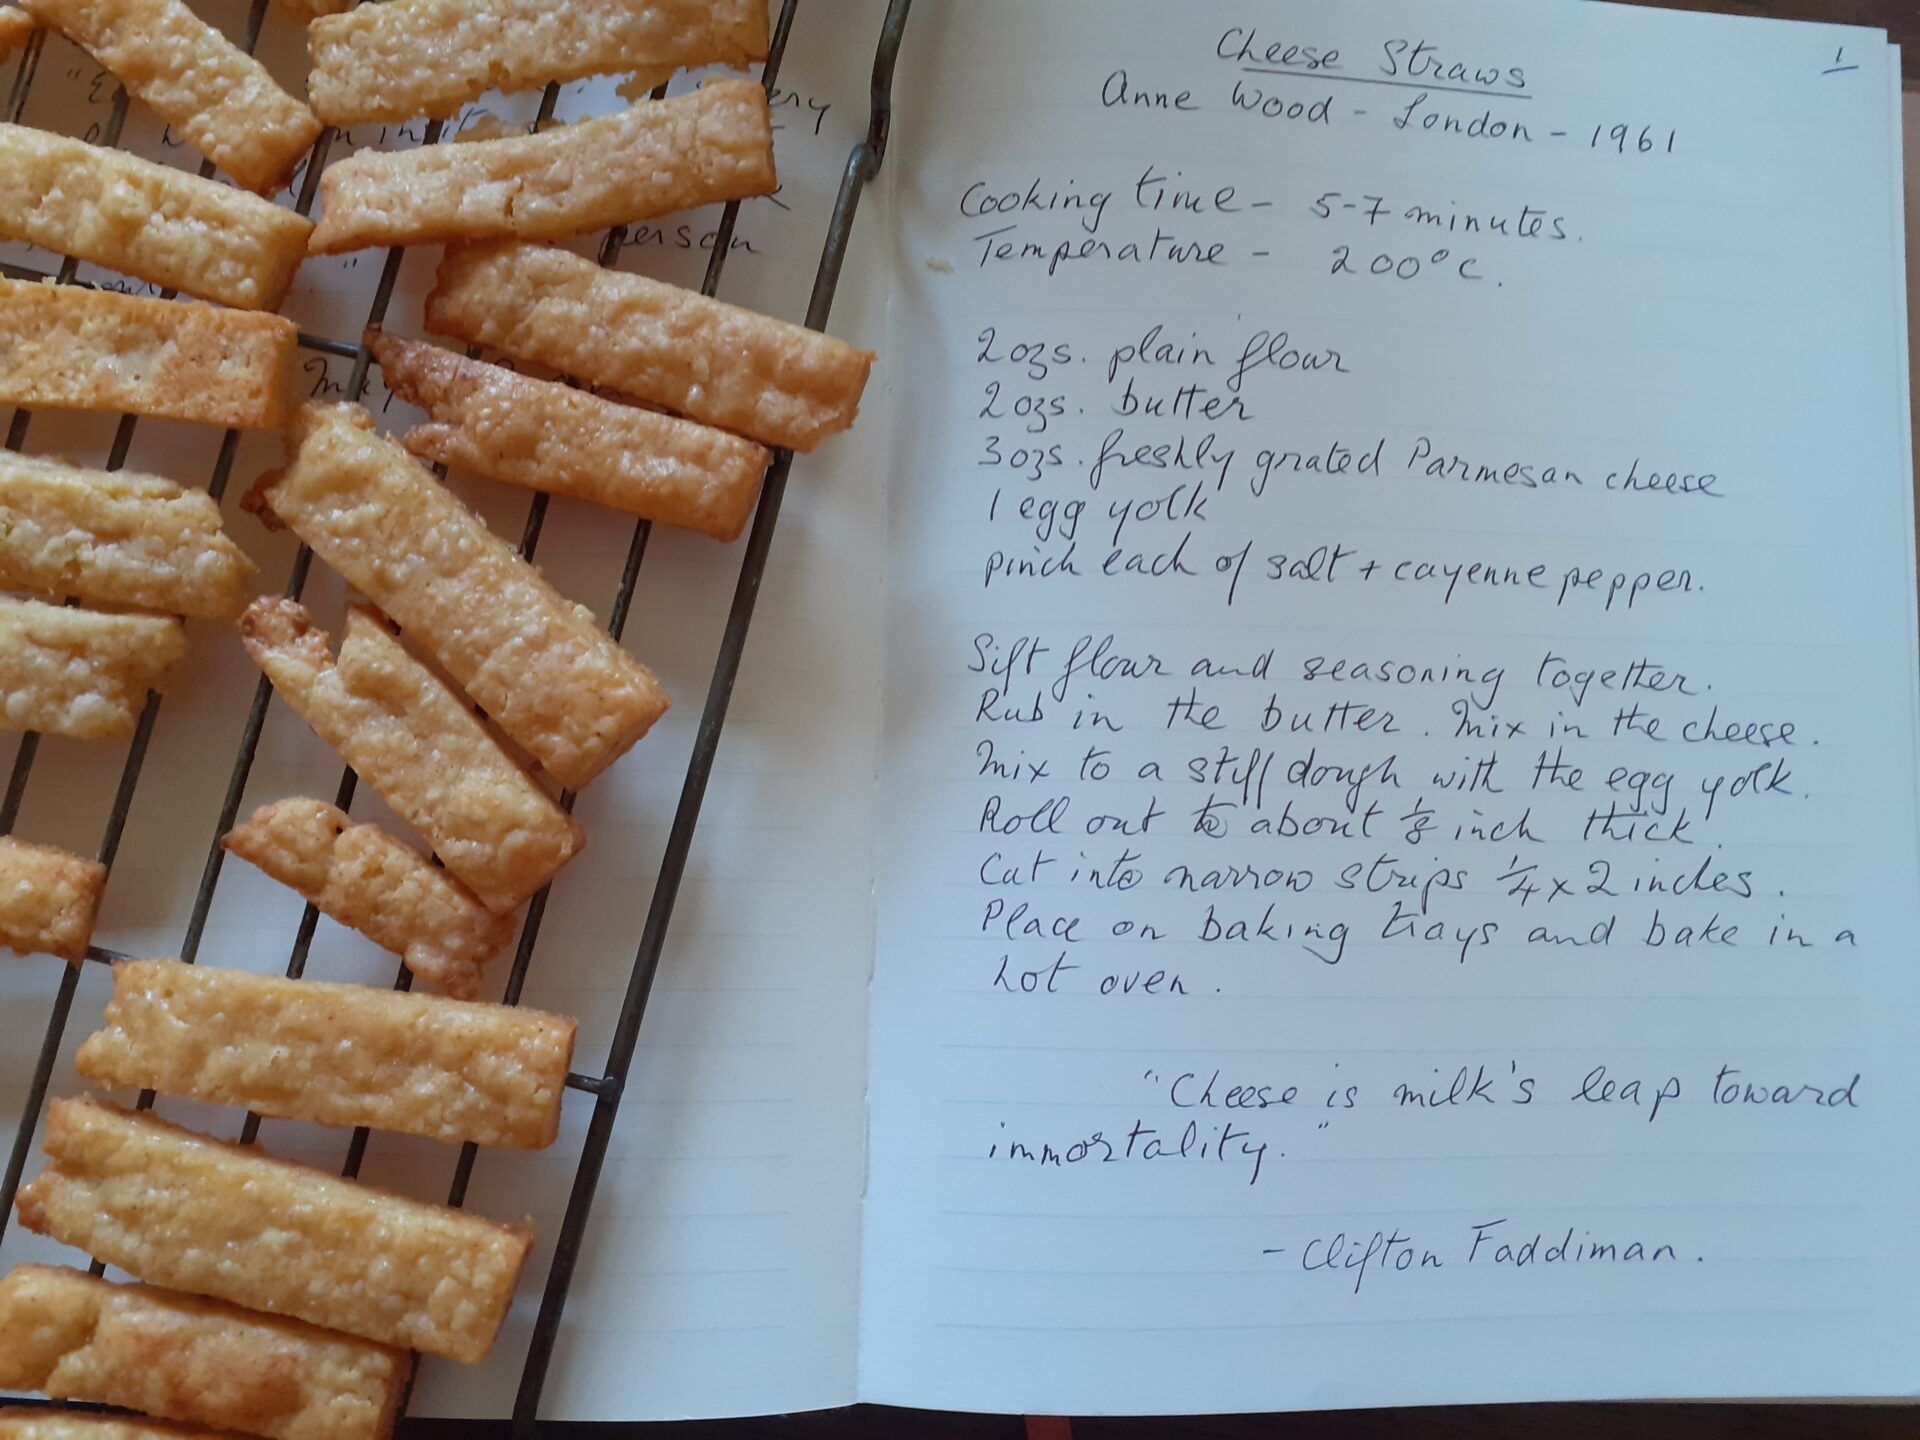 "E
ery
in it
person
"
may
1
Cheese Straws
Anne Wood - London - 1961
Cooking time - 5-7 minutes.
Temperature - 200°C.
2 ozs. plain flour
2 ozs. butter
3 ozs. freshly grated Parmesan cheese
1 egg yolk
pinch each of salt + cayenne pepper.
Sift flour and seasoning together.
Rub in the butter. Mix in the cheese.
Mix to a stiff dough with the egg yolk.
Roll out to about 1/8 inch thick.
Cut into narrow strips 1/4 x 2 inches.
Place on baking trays and bake in a
hot oven.
"Cheese is milk's leap toward
immortality."
- Clifton Faddiman.